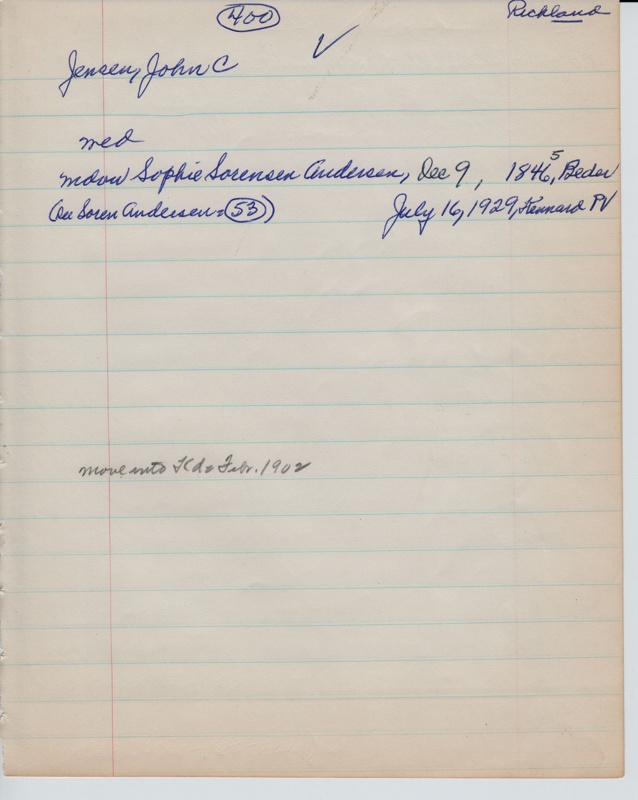 400
Richland
Jensen, John C
med
Sophie Sorensen Andersen, Dec 9, 1846, 5 Beder
(See Soren Andersen = 53)
July 16, 1929, Kennard
move into Kd Febr. 1902